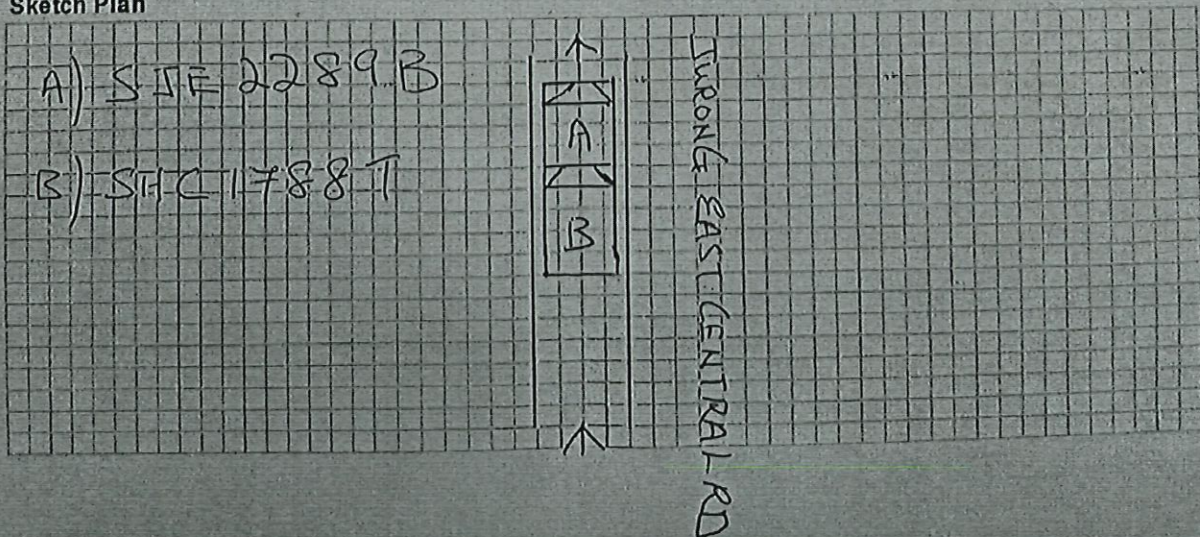 Sketch Plan
A) SJE 2289 B
B) SHC 1788 T
A
B
JURONG EAST CENTRAL RD